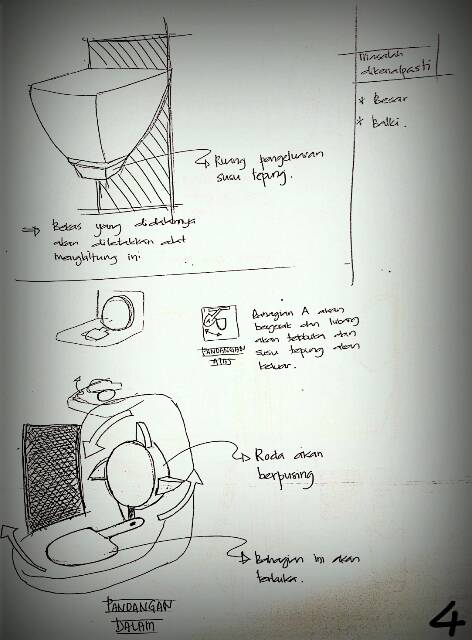 Masalah
dikenalpasti
* Besar
* Balki.
Ruang pengeluaran
susu tepung.
Bekas yang didalamnya
akan diletakkan alat
menghitung ini.
Bahagian A akan
bergerak dan lubang
akan terbuka dan
susu tepung akan
keluar.
A
PANDANGAN
ATAS
Roda akan
berpusing
Bahagian ini akan
terbuka.
PANDANGAN
DALAM
4